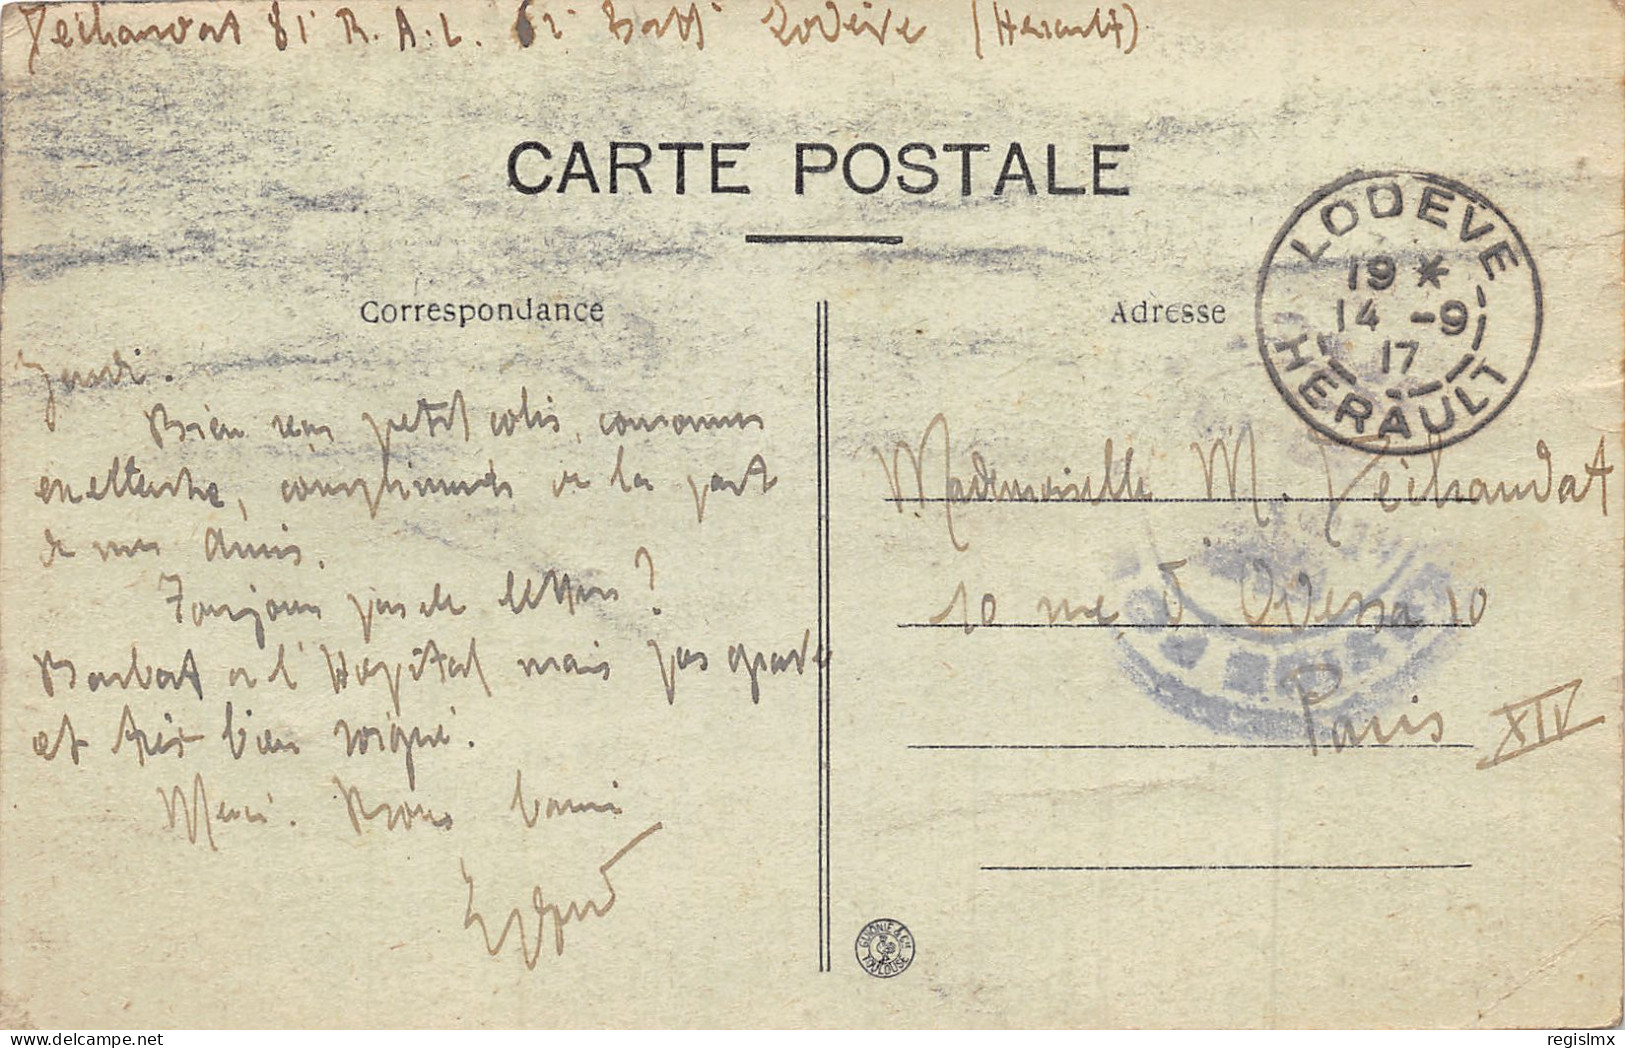 Péchaudat 81e R.A.L. 61e Batt Lodève (Hérault)
CARTE POSTALE
Correspondance
Adresse
LODEVE
19 *
14 -9
17
HERAULT
Jeudi.
Bien reçu petit colis,
compliments de la part
de mes amis.
Toujours pas de lettres ?
Barbat à l'Hôpital mais pas grave
et très bien soigné.
Merci. Bons
Mademoiselle M. Péchaudat
10 rue d'Odessa 10
Paris XIV
GUIONIE & Cie
TOULOUSE
delcampe.net
regislmx